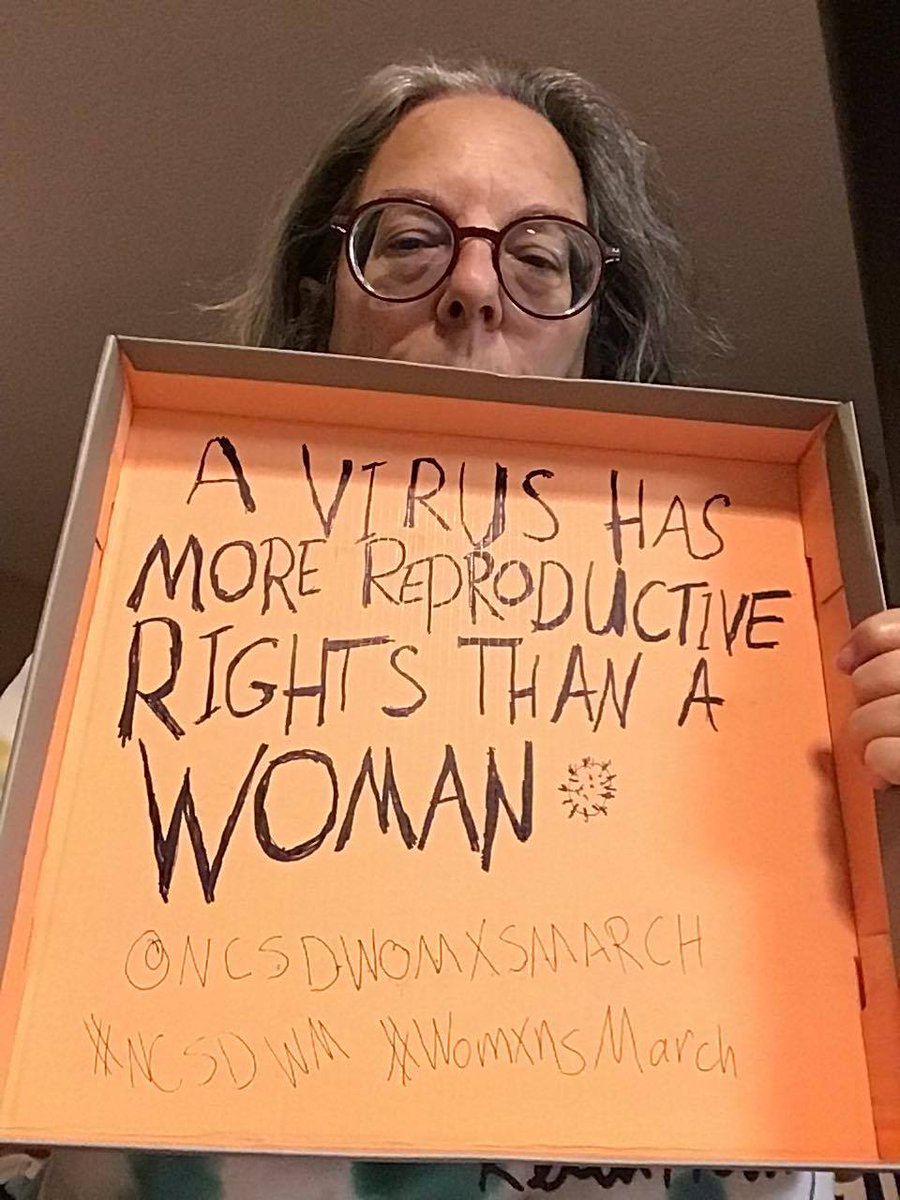 A VIRUS HAS
MORE REPRODUCTIVE
RIGHTS THAN A
WOMAN
@NCSDWOMXSMARCH
#NCSDWM #WomxnsMarch